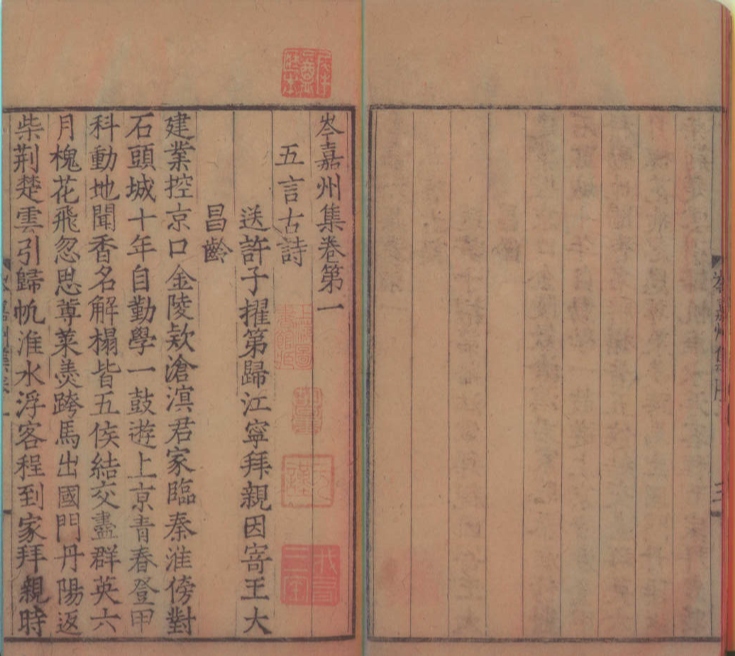 岑嘉州集卷第一
五言古詩
送許子擢第歸江寧拜親因寄王大
昌齡
建業控京口金陵欵滄溟君家臨秦淮傍對
石頭城十年自勤學一鼓遊上京青春登甲
科動地聞香名解榻皆五侯結交盡群英六
月槐花飛忽思蓴菜羮跨馬出國門丹陽返
柴荆楚雲引歸帆淮水浮客程到家拜親時